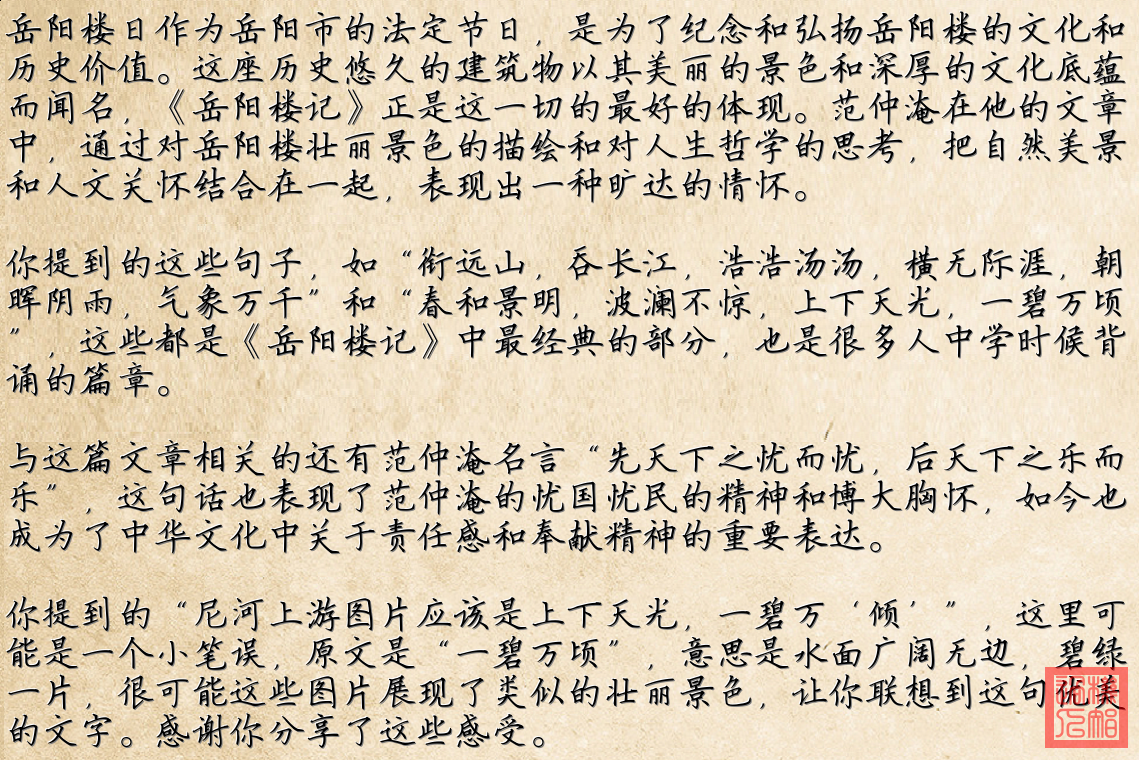 岳阳楼日作为岳阳市的法定节日，是为了纪念和弘扬岳阳楼的文化和
历史价值。这座历史悠久的建筑物以其美丽的景色和深厚的文化底蕴
而闻名，《岳阳楼记》正是这一切的最好的体现。范仲淹在他的文章
中，通过对岳阳楼壮丽景色的描绘和对人生哲学的思考，把自然美景
和人文关怀结合在一起，表现出一种旷达的情怀。
你提到的这些句子，如“衔远山，吞长江，浩浩汤汤，横无际涯，朝
晖阴雨，气象万千”和“春和景明，波澜不惊，上下天光，一碧万顷
”，这些都是《岳阳楼记》中最经典的部分，也是很多人中学时候背
诵的篇章。
与这篇文章相关的还有范仲淹名言“先天下之忧而忧，后天下之乐而
乐”，这句话也表现了范仲淹的忧国忧民的精神和博大胸怀，如今也
成为了中华文化中关于责任感和奉献精神的重要表达。
你提到的“尼河上游图片应该是上下天光，一碧万‘倾’”，这里可
能是一个小笔误，原文是“一碧万顷”，意思是水面广阔无边，碧绿
一片，很可能这些图片展现了类似的壮丽景色，让你联想到这句优美
的文字。感谢你分享了这些感受。